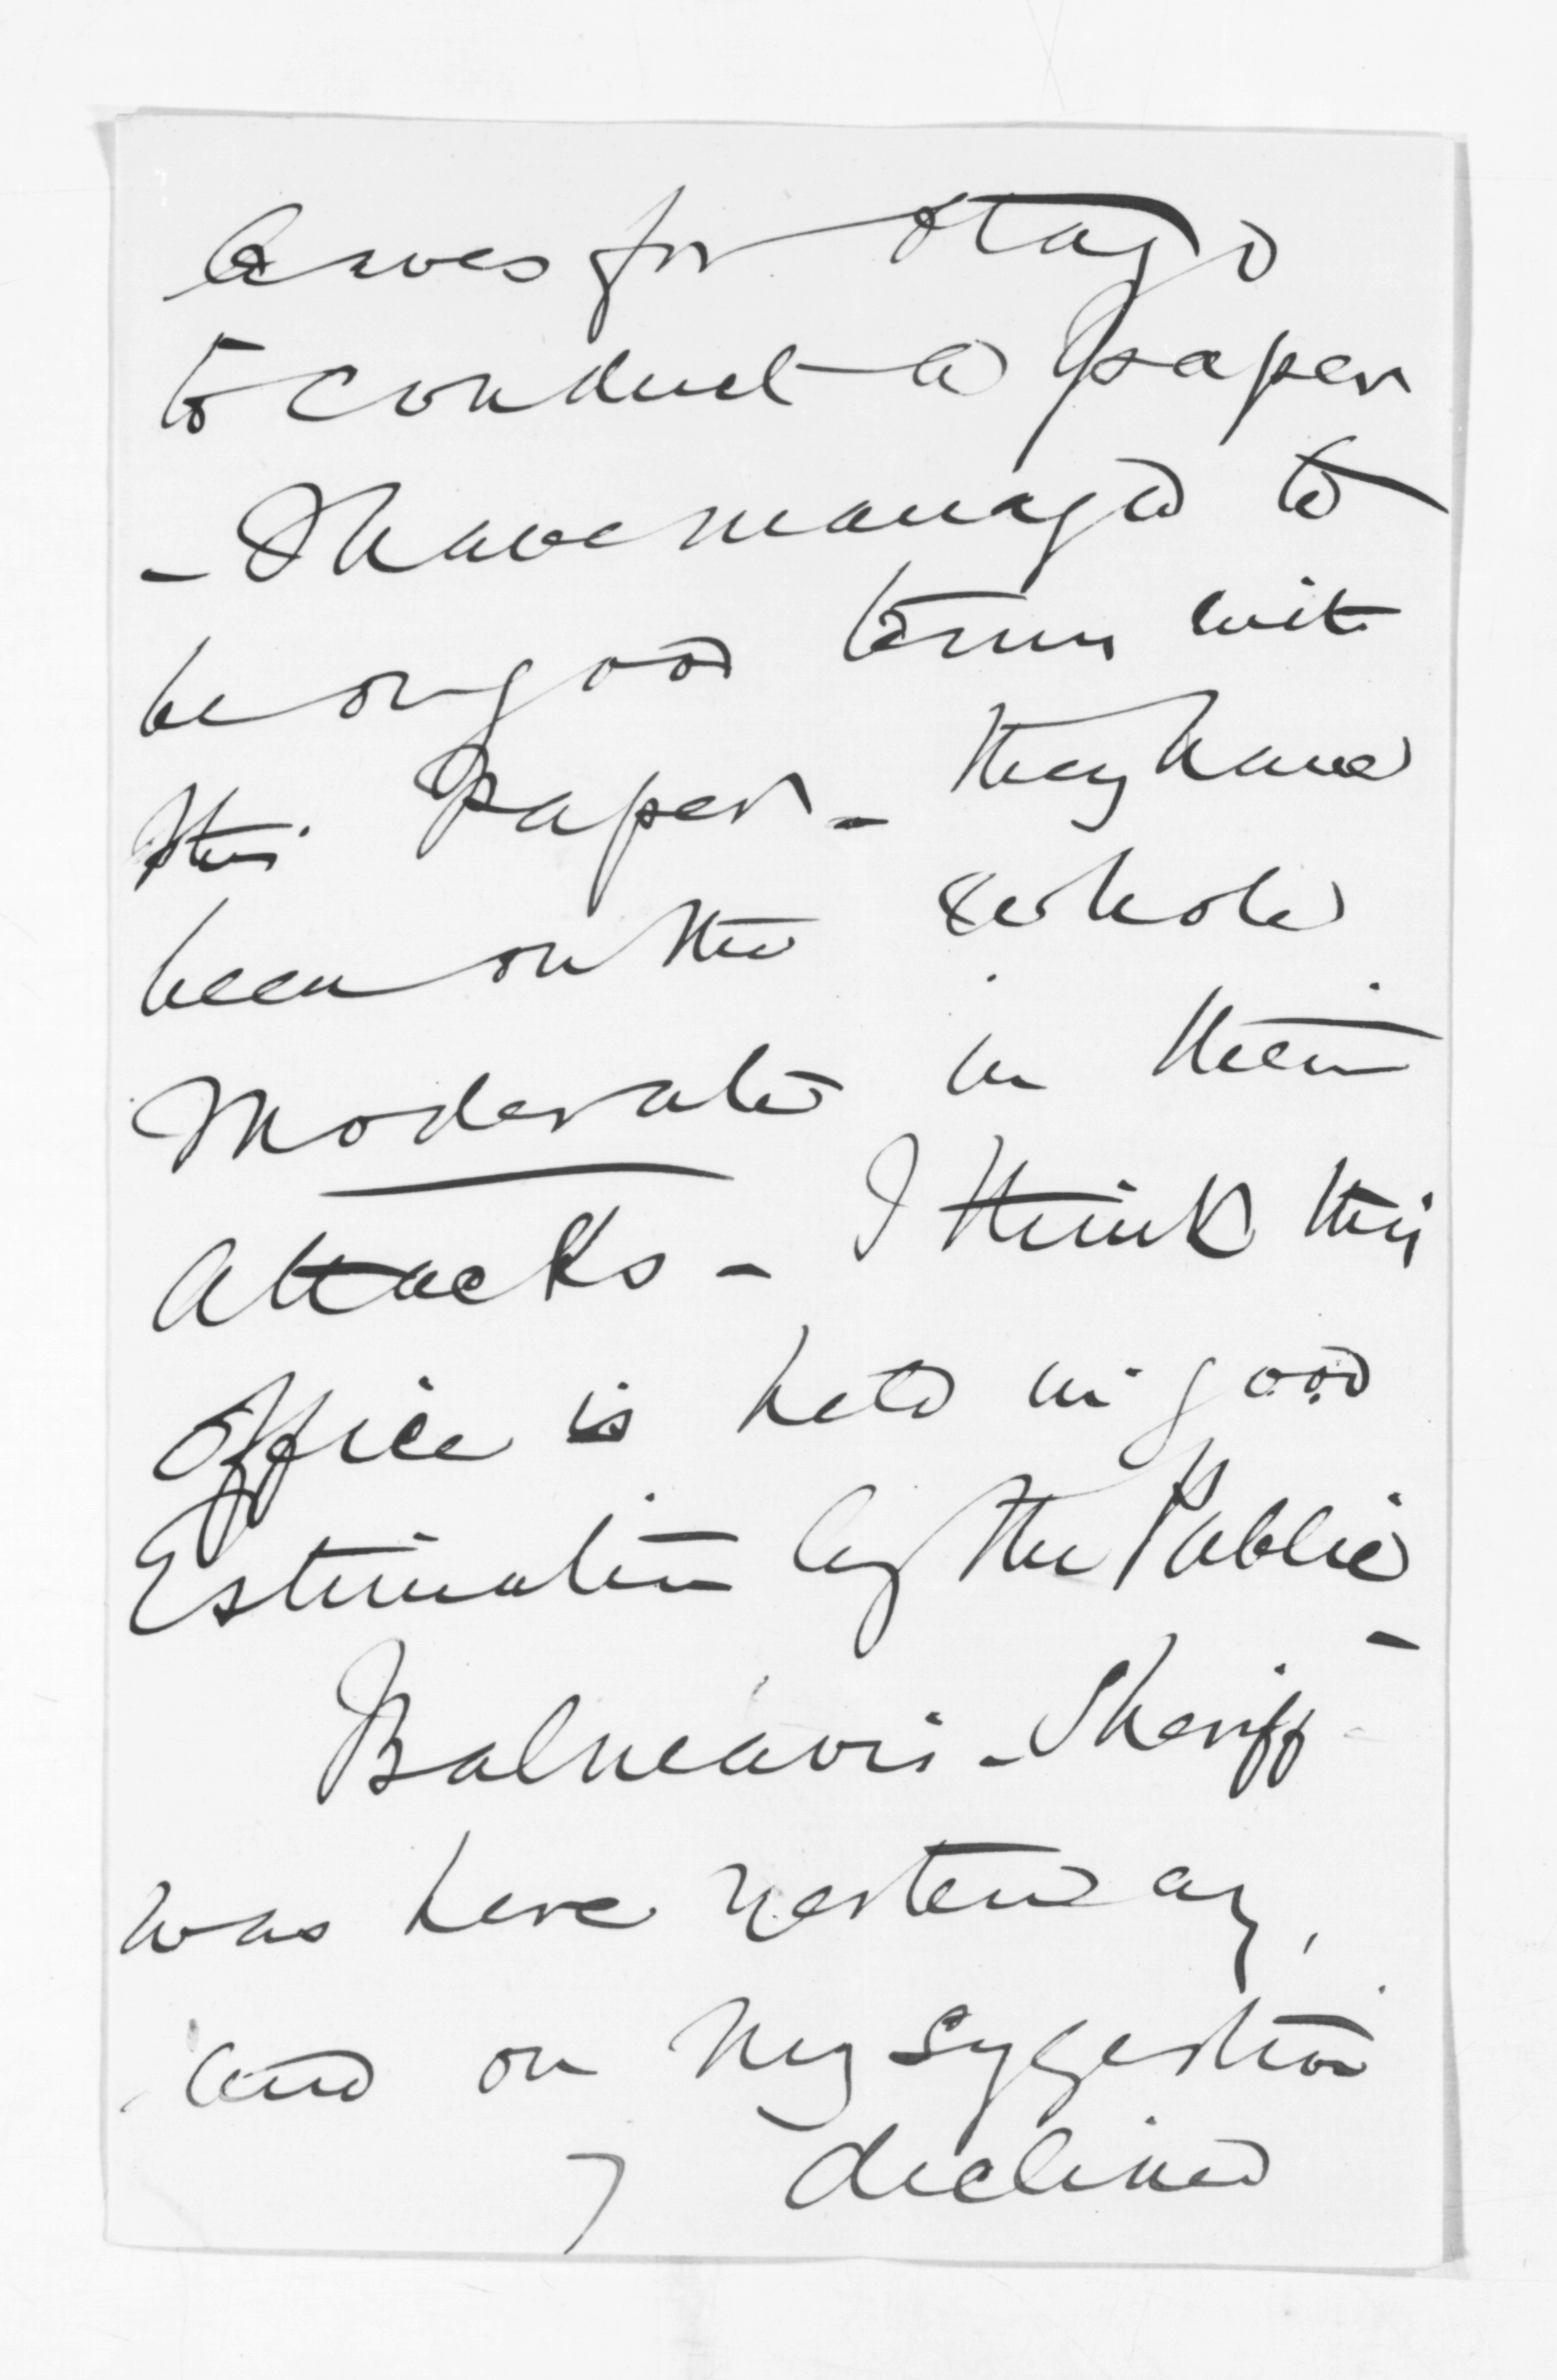 leaves for Otago
to conduct a paper
- I have managed to
be on good terms with
this Paper - they have
been on the whole
Moderate in their
attacks - I think this
Office is held in good
Estimation by the Public
-
Balneavis - Sheriff -
was here yesterday,
and on my suggestion
declined